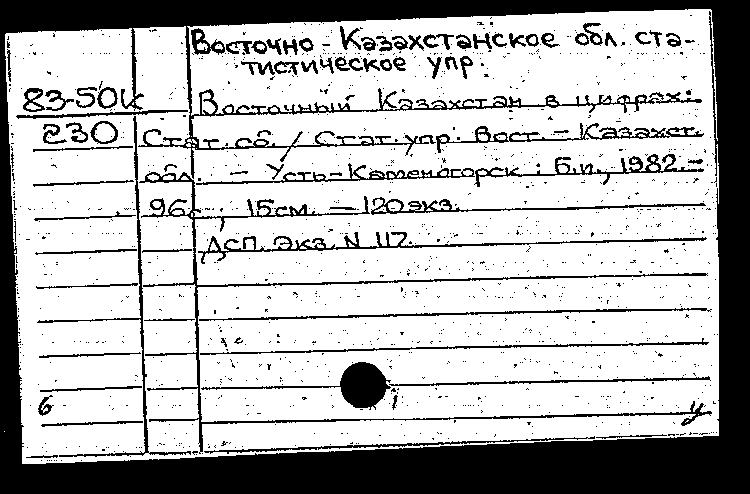 Восточно-Казахстанское обл. ста-
тистическое упр.
83-50к Восточный Казахстан в цифрах:
230 Стат. сб. / Стат. упр. Вост.-Казахст.
обл. – Усть-Каменогорск : Б.и., 1982.–
96с.; 15см. – 120экз.
ДСП. Экз. N 117.
6 У